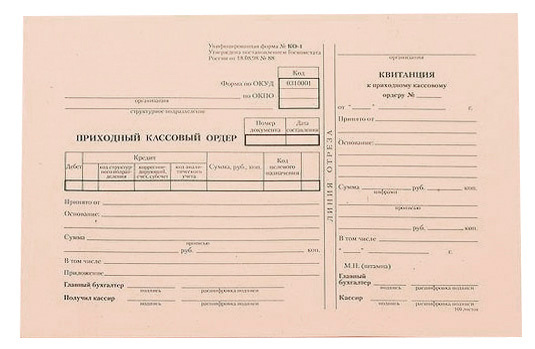 Унифицированная форма № КО-1
Утверждена постановлением Госкомстата
России от 18.08.98 № 88
Код
Форма по ОКУД 0310001
по ОКПО
организация
структурное подразделение
Номер документа Дата составления
ПРИХОДНЫЙ КАССОВЫЙ ОРДЕР
Дебет Кредит Сумма, руб., коп. Код целевого назначения
код структурного подразделения корреспондирующий счет, субсчет код аналитического учета
Принято от
Основание:
Сумма
прописью
руб. коп.
В том числе
Приложение
Главный бухгалтер
подпись расшифровка подписи
Получил кассир
подпись расшифровка подписи
ЛИНИЯ ОТРЕЗА
организация
КВИТАНЦИЯ
к приходному кассовому
ордеру №
от " " г.
Принято от
Основание:
Сумма руб. коп.
цифрами
прописью
руб. коп.
В том числе
" " г.
М.П. (штампа)
Главный
бухгалтер
подпись расшифровка подписи
Кассир
подпись расшифровка подписи